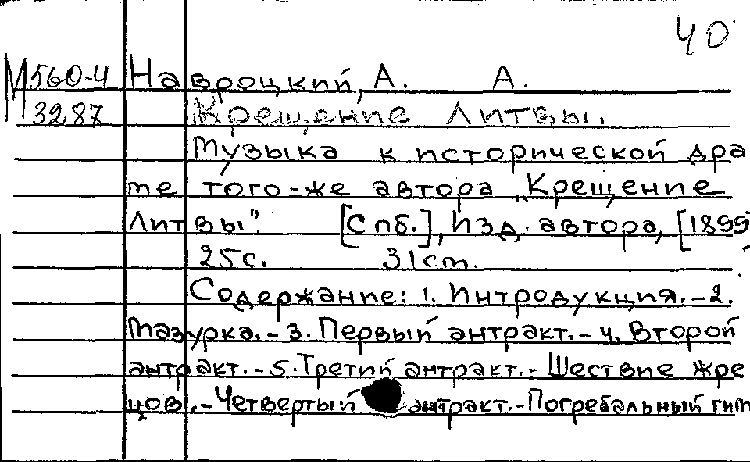 40
М560-4 Навроцкий, А. А.
3287 Крещение Литвы.
Музыка к исторической дра
ме того-же автора „Крещение
Литвы". [Спб.], Изд. автора, [1899
25с. 31см.
Содержание: 1. Интродукция.-2.
Мазурка.-3. Первый антракт.-4. Второй
антракт.-5. Третий антракт.- Шествие жре
цов.-Четвертый антракт.-Погребальный гим